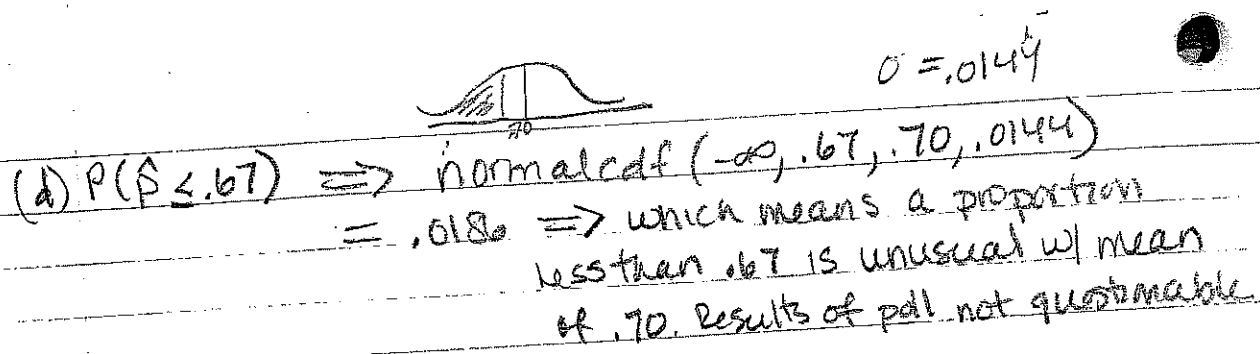 σ = .0144
.70
(d) P(p̂ ≤ .67) ⟹ normalcdf (-∞, .67, .70, .0144)
= .0186 ⟹ which means a proportion
less than .67 is unusual w/ mean
of .70. Results of poll not questionable.